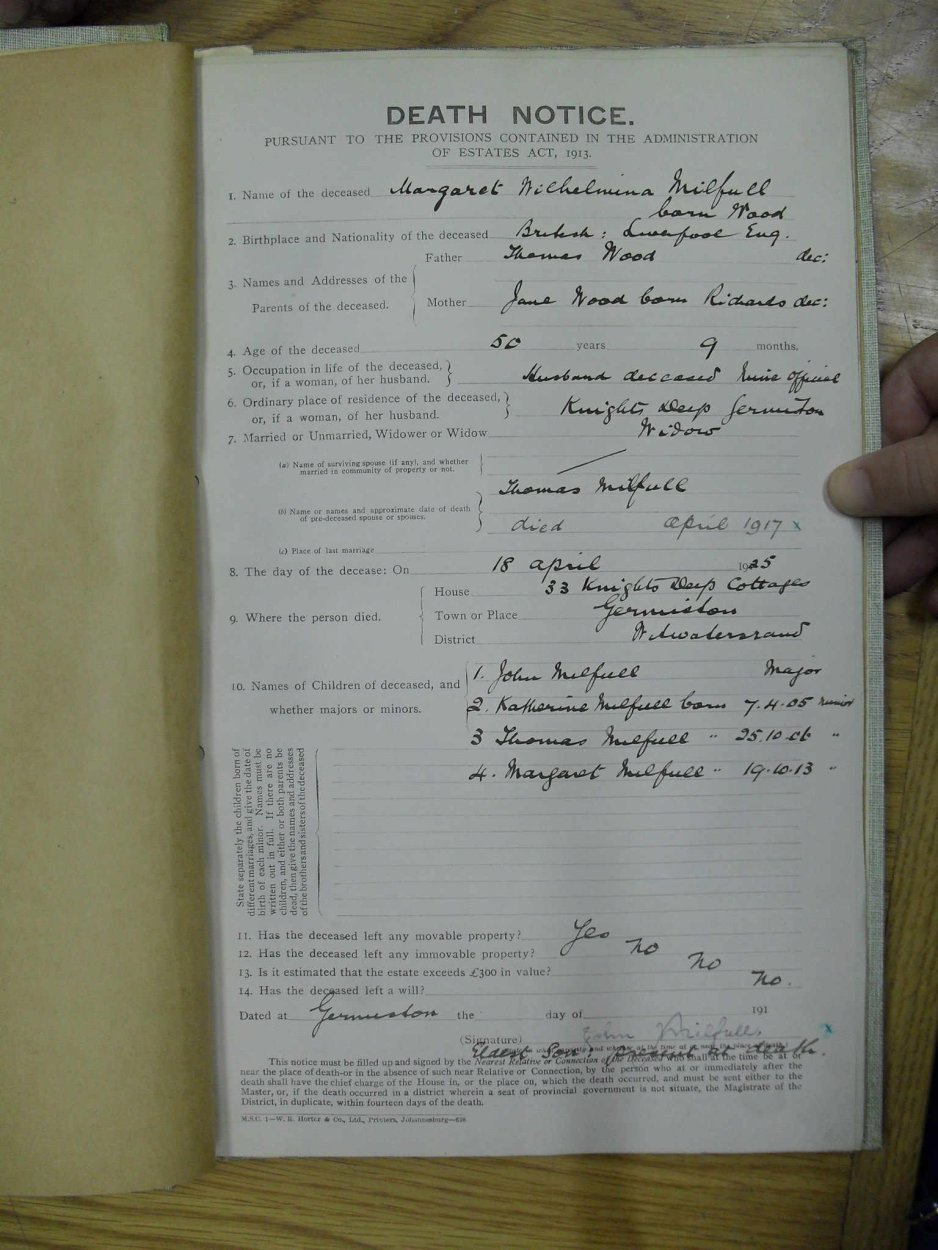 DEATH NOTICE.
PURSUANT TO THE PROVISIONS CONTAINED IN THE ADMINISTRATION
OF ESTATES ACT, 1913.
1. Name of the deceased Margaret Wilhelmina Milfull
born Wood
2. Birthplace and Nationality of the deceased British: Liverpool Eng.
3. Names and Addresses of the Parents of the deceased.
Father Thomas Wood dec:
Mother Jane Wood born Richards dec:
4. Age of the deceased 50 years 9 months.
5. Occupation in life of the deceased, or, if a woman, of her husband. Husband deceased Mine Official
6. Ordinary place of residence of the deceased, or, if a woman, of her husband. Knights Deep Germiston
7. Married or Unmarried, Widower or Widow Widow
(a) Name of surviving spouse (if any), and whether married in community of property or not.
Thomas Milfull
(b) Name or names and approximate date of death of pre-deceased spouse or spouses.
died April 1917 x
(c) Place of last marriage
8. The day of the decease: On 18 April 1925
9. Where the person died.
House 33 Knights Deep Cottages
Town or Place Germiston
District Witwatersrand
10. Names of Children of deceased, and whether majors or minors.
1. John Milfull Major
2. Katherine Milfull born 7.4.05 minor
3 Thomas Milfull " 25.10. "
4. Margaret Milfull " 19.10.13 "
State separately the children born of
different marriages, and give the date of
birth of each minor. Names must be
written out in full. If there are no
children, and either or both parents be
dead, then give the names and addresses
of the brothers and sisters of the deceased
11. Has the deceased left any movable property? Yes
12. Has the deceased left any immovable property? No
13. Is it estimated that the estate exceeds £300 in value? No
14. Has the deceased left a will? No.
Dated at Germiston the day of 191
(Signature) John Milfull x
Eldest Son: present at death.
This notice must be filled up and signed by the Nearest Relative or Connection of the Deceased who shall at the time be at or
near the place of death-or in the absence of such near Relative or Connection, by the person who at or immediately after the
death shall have the chief charge of the House in, or the place on, which the death occurred, and must be sent either to the
Master, or, if the death occurred in a district wherein a seat of provincial government is not situate, the Magistrate of the
District, in duplicate, within fourteen days of the death.
M.S.C. 1—W. E. Hortor & Co., Ltd., Printers, Johannesburg—